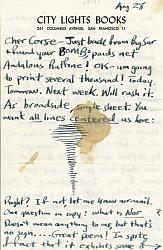 Aug 28
CITY LIGHTS BOOKS
261 COLUMBUS AVENUE, SAN FRANCISCO 11
Cher Corso — Just back from Big Sur
& found your BOMB
Andalous Raffine! OK — am going
to print several thousand! Today.
Tomorrow. Next week. Will rush it.
As broadside, single sheet. You
want all lines centered as here:
Right? If not let me know airmail.
One question on copy: what is
Doesn't mean anything to me, but that's
no sign..... Great Poem! In spite
of fact that it exhibits some